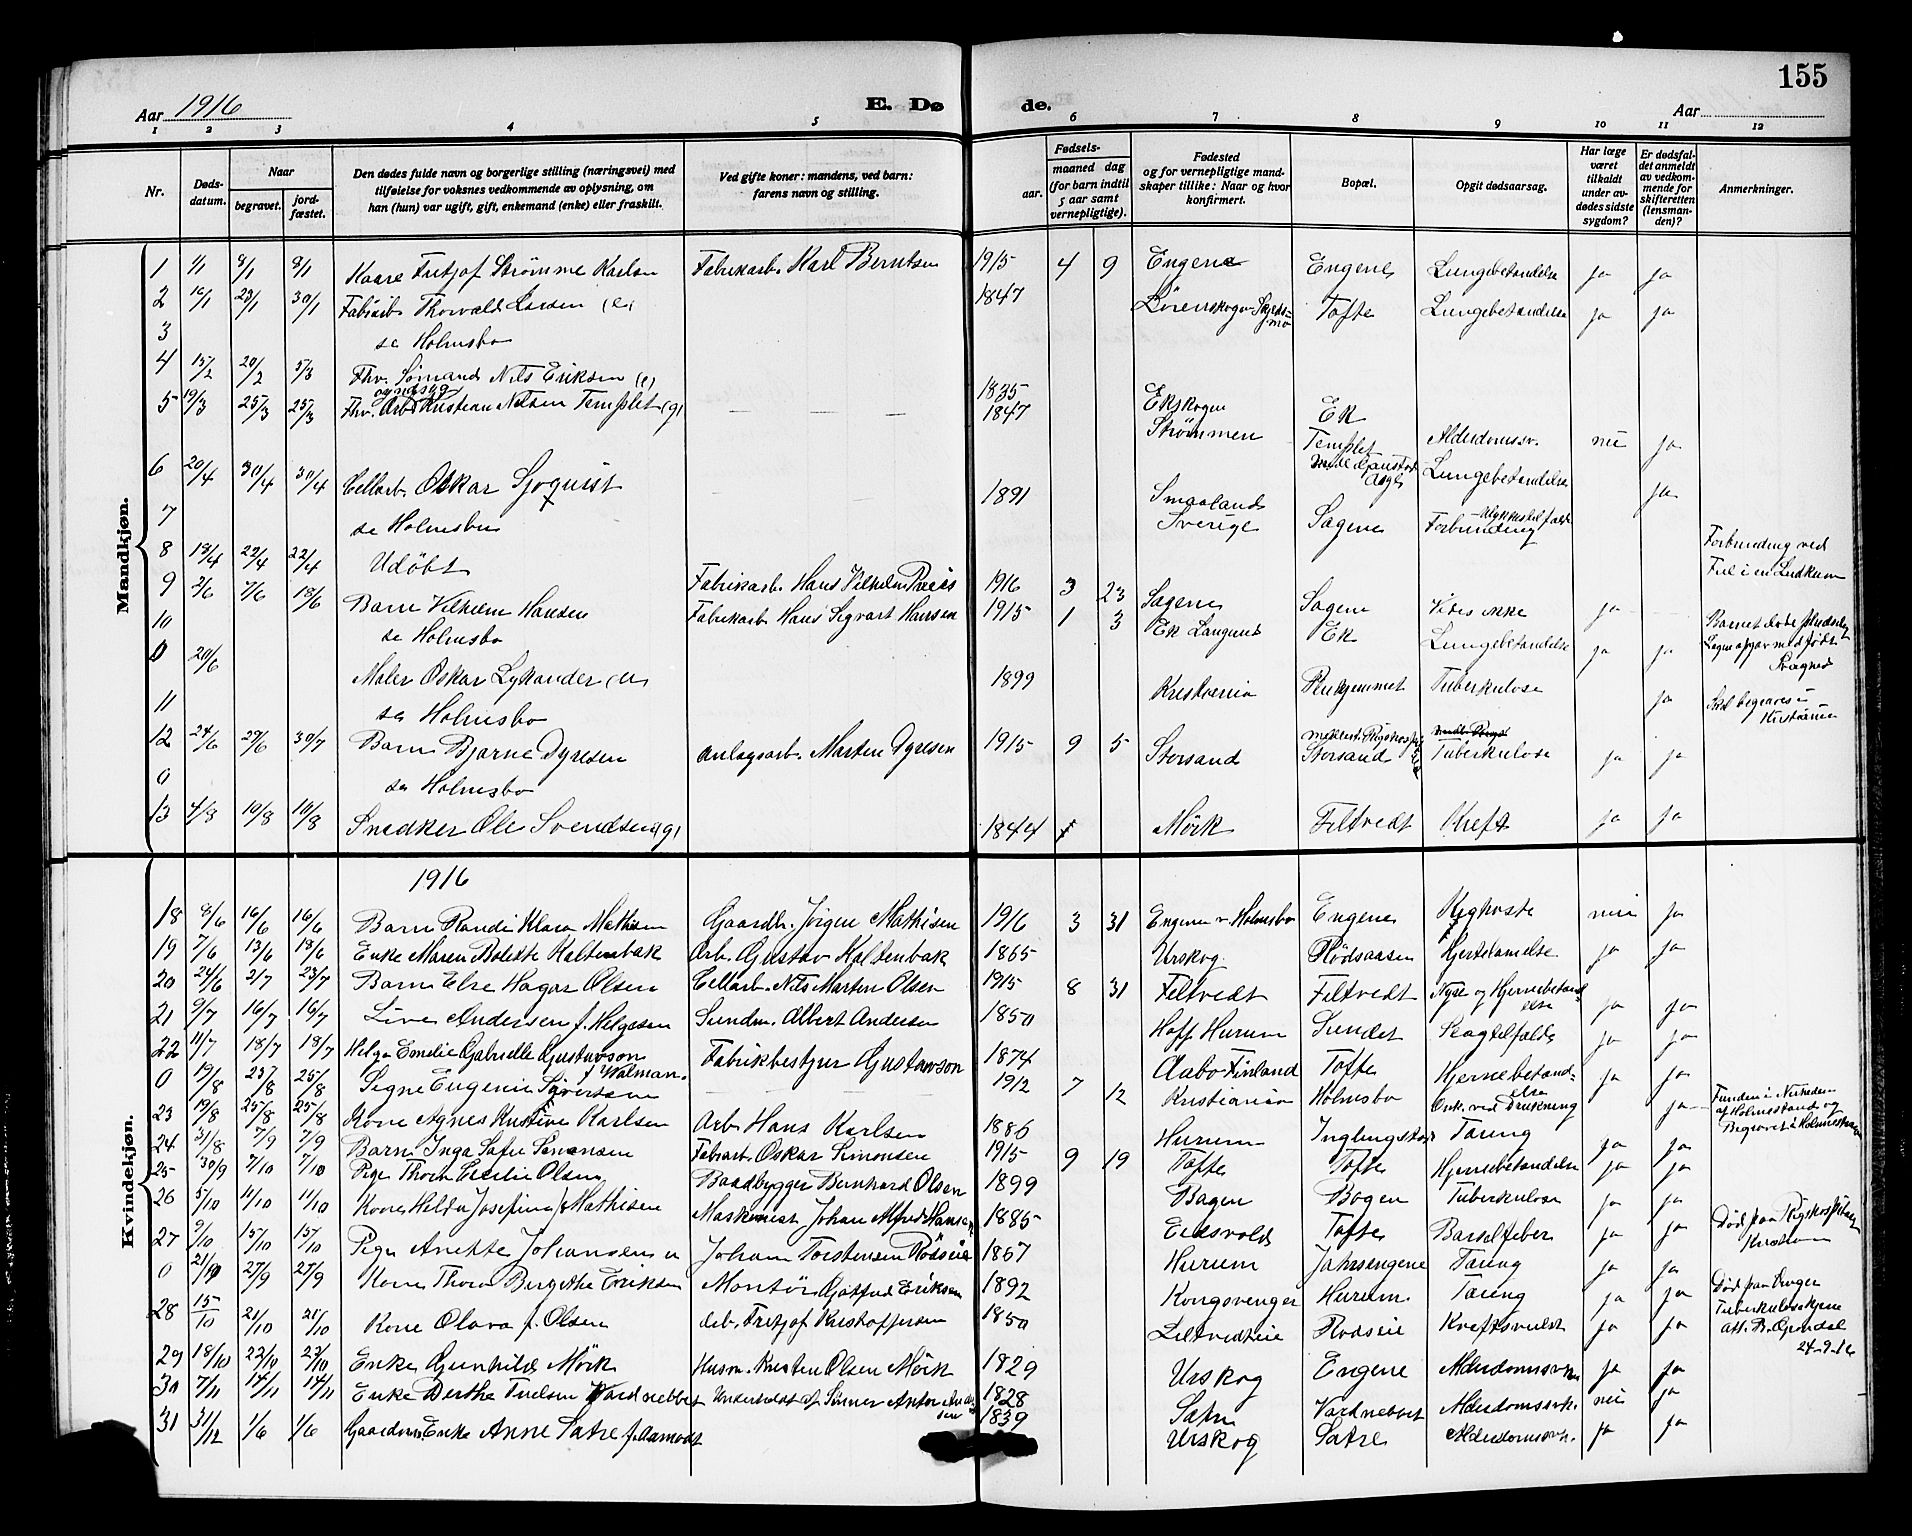 155
Aar 1916 E. Dø de. Aar
1 2 3 4 5 6 7 8 9 10 11 12
Nr.
Døds-
datum.
Naar
begravet.
jord-
fæstet.
Den dødes fulde navn og borgerlige stilling (næringsvei) med
tilføielse for voksnes vedkommende av oplysning, om
han (hun) var ugift, gift, enkemand (enke) eller fraskilt.
Ved gifte koner: mandens, ved barn:
farens navn og stilling.
Fødsels-
aar.
maaned dag
(for barn indtil
5 aar samt
vernepligtige).
Fødested
og for vernepligtige mand-
skaper tillike: Naar og hvor
konfirmert.
Bopæl.
Opgit dødsaarsag.
Har læge
været
tilkaldt
under av-
dødes sidste
sygdom?
Er dødsfal-
det anmeldt
av vedkom-
mende for
skifteretten
(lensman-
den)?
Anmerkninger.
Mandkjøn.
1 1/1 8/1 8/1 Kaare Fritjof Strømme Karlsen Fabrikarb. Karl Berntsen 1915 4 9 Engene Engene Lungebetændelse ja ja
2 16/1 23/1 30/1 Fabrikarb. Thorvald Larsen (e) 1847 Lörenskogen Tofte Lungebetændelse ja ja
3 se Holmsbo
4 15/2 20/2 5/3 Fhv. Sømand Nils Eriksen (e) 1835 Ekskogen Ek Alderdomssv. nei ja
5 19/3 25/3 25/3 Fhv. Arb. Kristian Nilsen Templet (g) 1847 Strømmen Templet Lungebetændelse ja
6 20/4 30/4 30/4 Cellarb. Oskar Sjøquist 1891 Smaaland Sverige Sagene Forbrænding
Forbrænding ved
7 se Holmsbo
8 18/4 22/4 22/4 Udöbt Fabrikarb. Hans Vilhelm 1916 3 23 Sagene Sagene Vides ikke ja
9 2/6 7/6 18/6 Barn Vilhelm Hansen Fabrikarb. Hans Sigvart Hansen 1915 1 3 Ek Ek Lungebetændelse ja ja
10 se Holmsbo
0 20/6 Maler Oskar Lykander (u) 1899 Kristiania Tuberkulose ja
Skal begraves i
Kristiania
11 se Holmsbo
12 24/6 29/6 30/7 Barn Bjarne Dyresen Anlægsarb. Marten Dyresen 1915 9 5 Storsand Storsand Tuberkulose ja ja
0 se Holmsbo
13 4/8 10/8 10/8 Snedker Ole Svendsen (g) 1844 Mörk Filtvedt Kreft ja ja
Kvindekjøn.
1916
18 8/6 16/6 16/6 Barn Randi Klara Mathisen Gaardbr. Jörgen Mathisen 1916 3 31 Engene v. Holmsbo Engene Kighoste nei ja
19 7/6 13/6 18/6 Enke Maren Bolette Kaltenbak Arb. Gustav Kaltenbak 1865 Urskog Rödsaasen Hjertelamelse ja ja
20 24/6 2/7 23/7 Barn Else Hagar Olsen Cellarb. Nils Marten Olsen 1915 8 31 Filtvedt Filtvedt Nyre og Hjernebetændelse ja ja
21 9/7 16/7 16/7 Live Andersen f. Helgesen Sundm. Albert Andersen 1850 Hoff Hurum Sundet Slagtilfælde ja ja
22 11/7 18/7 18/7 Helga Emelie Gabrielle Gustavson f. Walman. Fabrikbestyrer Gustavson 1874 Aabo Finland Tofte Hjernebetændelse ja ja
0 19/8 25/8 25/8 Signe Eugenie Sivertsen 1912 7 12 Kristiania Holmsbo Ved Drukning ja
Funden i Nærheden
af Holmestrand og
Begravet i Holmestrand
23 19/8 25/8 25/8 Kone Agnes Kristine Karlsen Arb. Hans Karlsen 1886 Hurum Taring ja ja
24 31/8 7/9 7/9 Barn Inga Sofie Simonsen Fabrikarb. Oskar Simonsen 1915 9 19 Tofte Tofte Hjernebetændelse ja ja
25 30/9 7/10 7/10 Pige Thora Cecilie Olsen Baadbygger Bernhard Olsen 1899 Bogen Bogen Tuberkulose ja ja
26 5/10 11/10 11/10 Kone Hilda Josefine f. Mathisen Maskinist Johan Alfred Hansen 1885 Eidsvold Tofte Barselfeber ja ja
Död paa Rigshospitalet
Kristiania
27 9/10 15/10 15/10 Pige Anette Johansen u Johan Torstensen Rödseie 1867 Hurum Jahrsengene Taring ja ja
0 21/9 27/9 27/9 Kone Thora Bergithe Eriksen Montör Gotfred Eriksen 1892 Kongsvinger Hurum. Taring ja ja
Död paa
Tuberkulosehjem
24-9-16
28 15/10 21/10 21/10 Kone Olava f. Olsen Arb. Fritjof Kristoffersen 1850 Filtvedteie Rödseie Kreftsvulst ja ja
29 18/10 22/10 22/10 Enke Gunhild Mörk Husm. Kristen Olsen Mörk 1829 Urskog Engene Alderdomssvh. ja ja
30 7/11 14/11 14/11 Enke Berthe Nielsen Vardnebbet Underholdt af Sönner Anton Andersen 1828 Sætre Vardnebbet Alderdomssvh. nei ja
31 31/12 1/6 1/6 Gaardm. Enke Anne Sætre f. Aamodt 1839 Urskog Sætre Alderdomssvh. ja ja